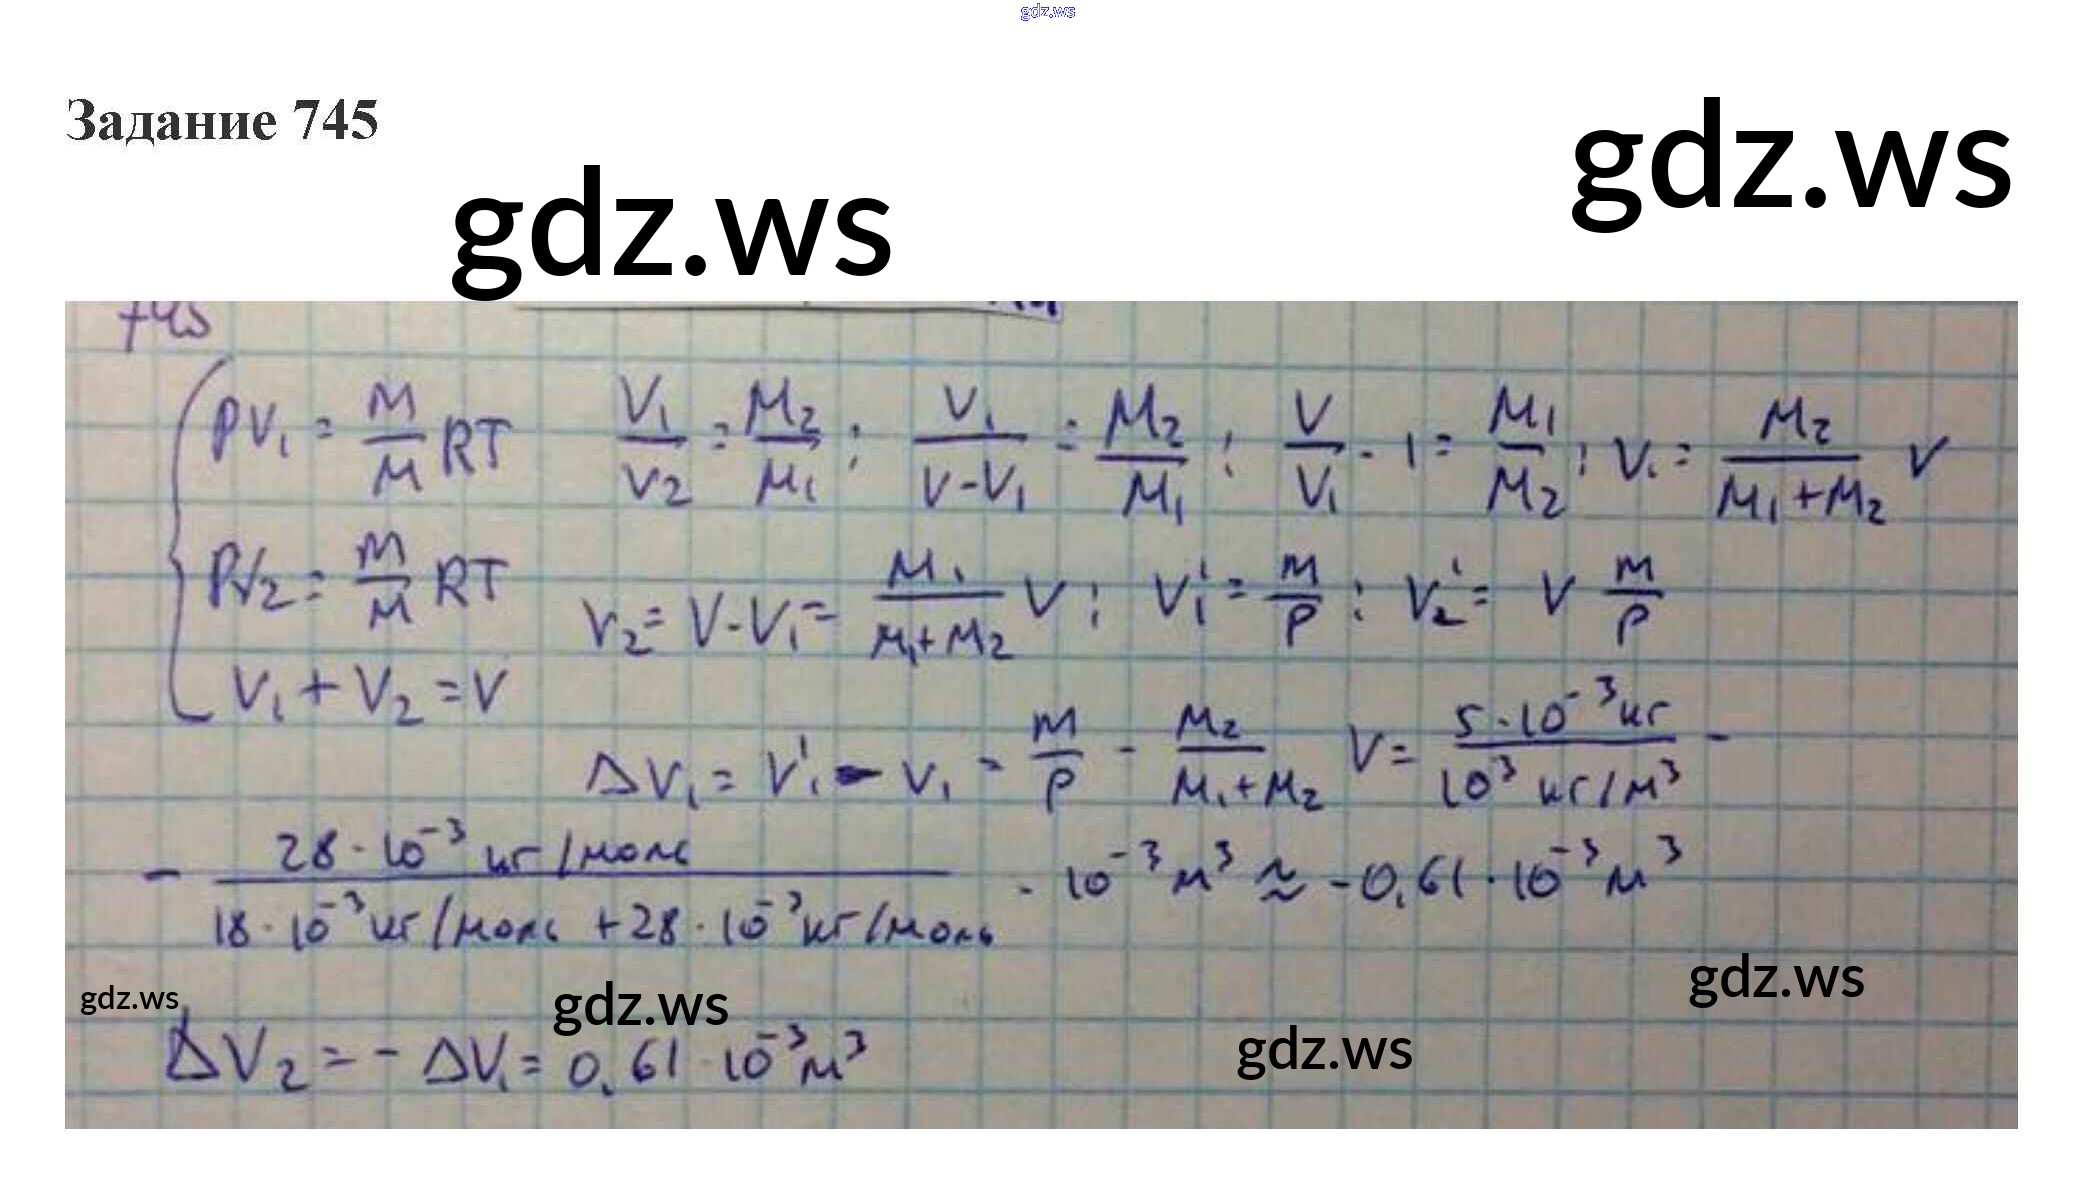 gdz.ws
Задание 745
gdz.ws
gdz.ws
745
PV₁ = m/M RT   V₁/V₂ = M₂/M₁ ; V₁/(V-V₁) = M₂/M₁ ; V/V₁ - 1 = M₁/M₂ ; V₁ = M₂/(M₁+M₂) V
PV₂ = m/M RT   V₂ = V-V₁ = M₁/(M₁+M₂) V ; V₁' = m/P ; V₂' = V m/P
V₁ + V₂ = V
ΔV₁ = V₁' - V₁ = m/P - M₂/(M₁+M₂) V = 5·10⁻³ кг/10³ кг/м³ -
- 28·10⁻³ кг/моль/(18·10⁻³ кг/моль + 28·10⁻³ кг/моль) · 10⁻³ м³ ≈ -0,61·10⁻³ м³
gdz.ws
gdz.ws
gdz.ws
gdz.ws
ΔV₂ = - ΔV₁ = 0,61·10⁻³ м³